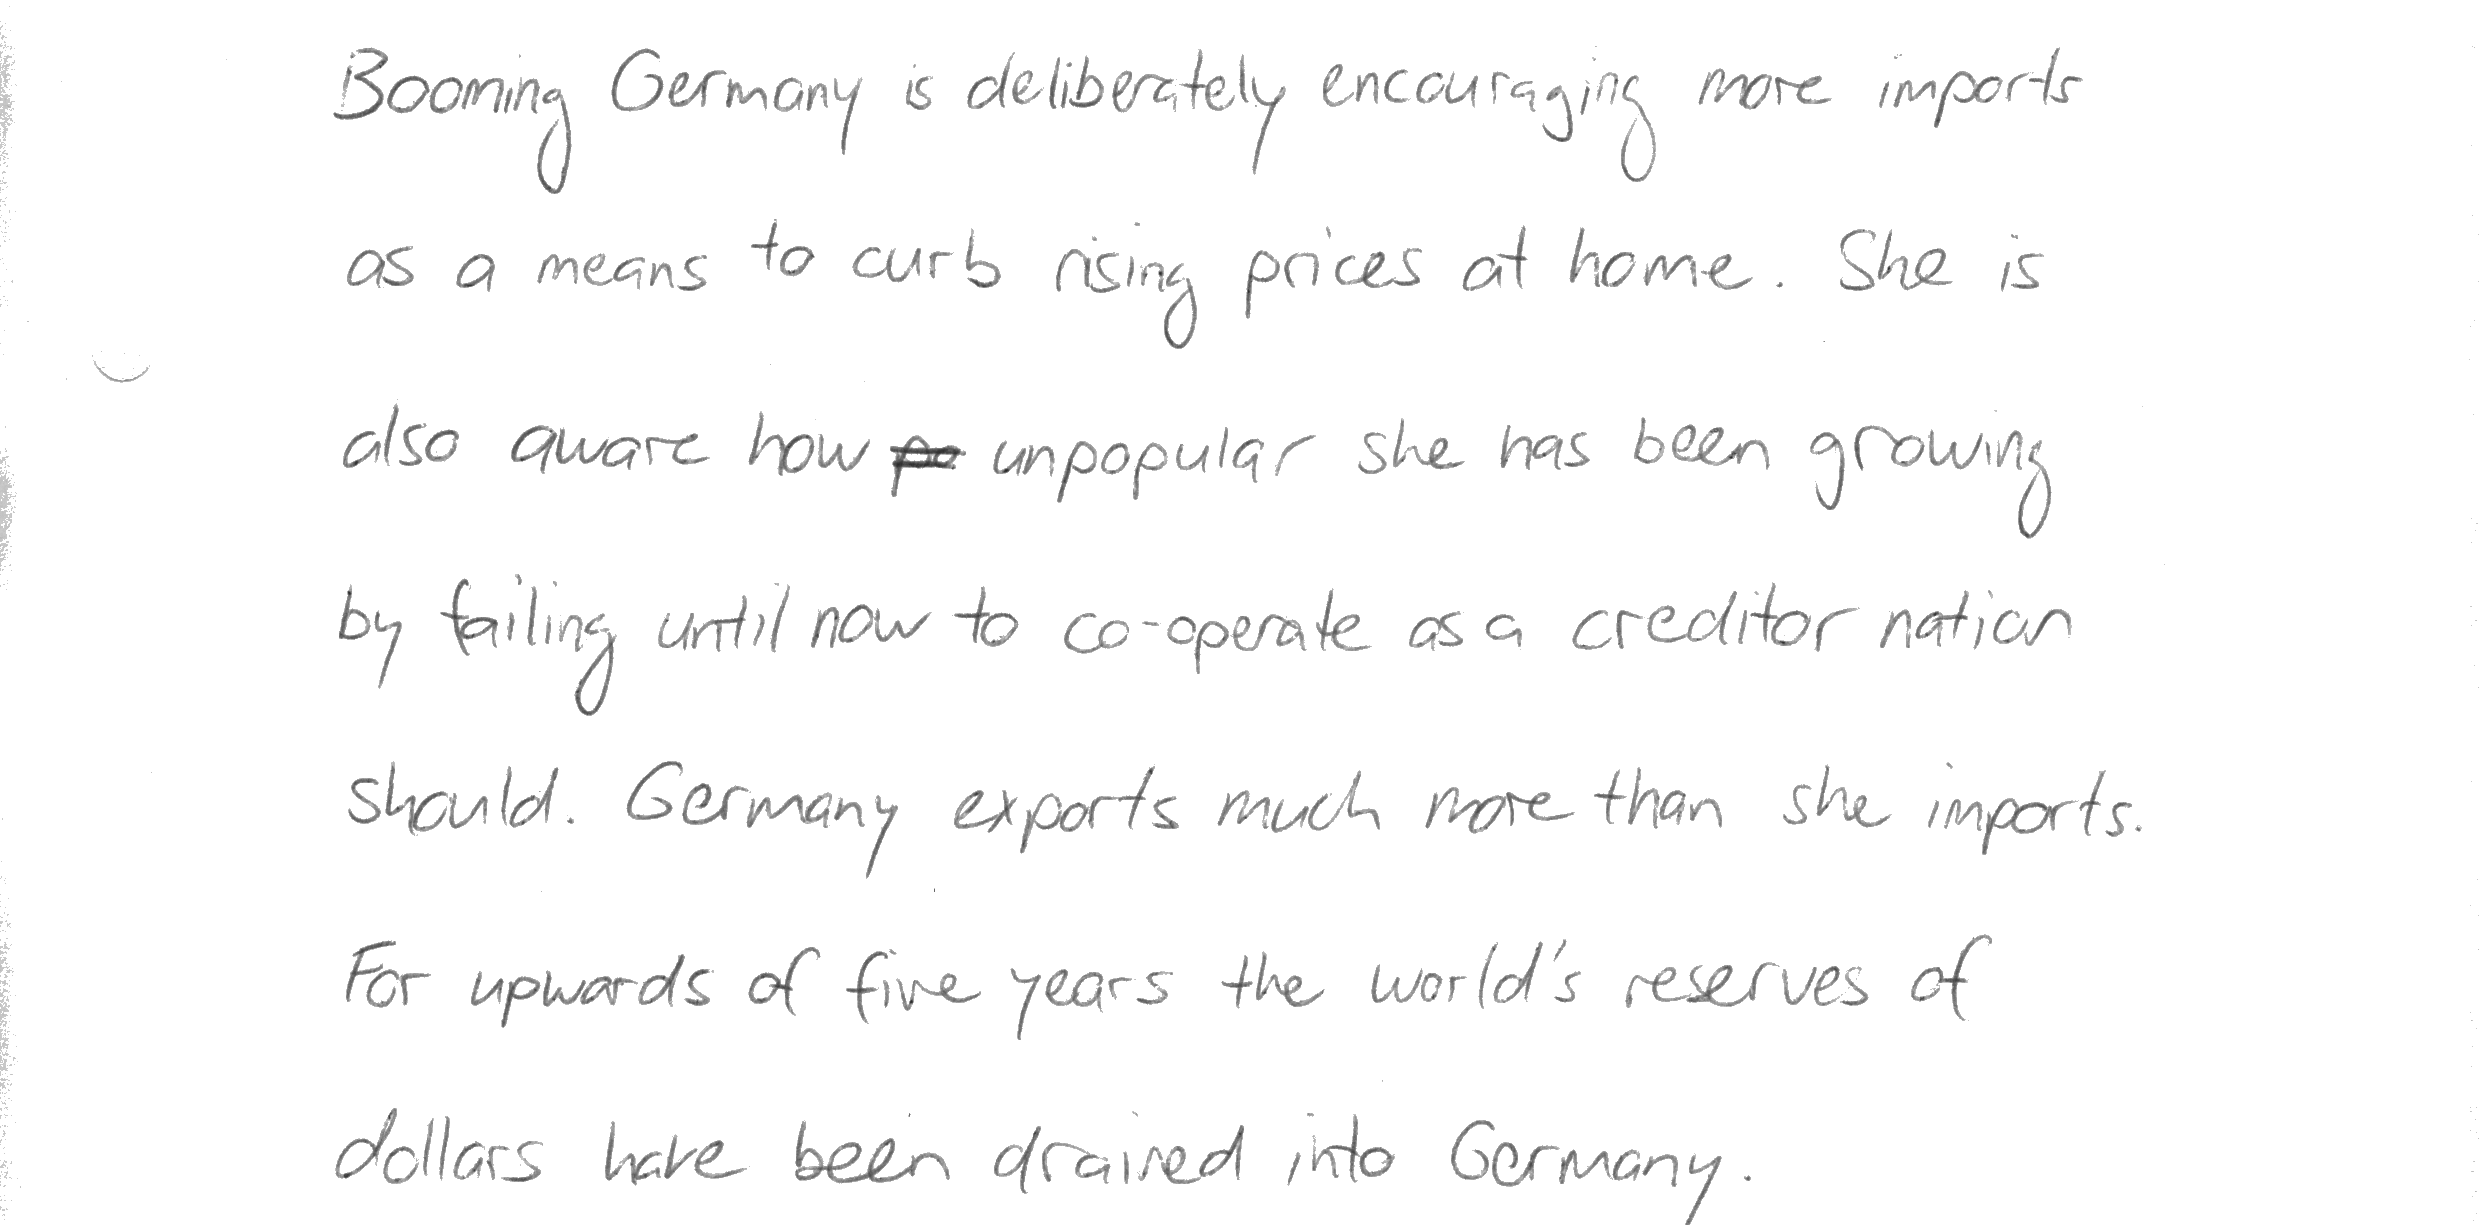 Booming Germany is deliberately encouraging more imports
as a means to curb rising prices at home. She is
also aware how unpopular she has been growing
by failing until now to co-operate as a creditor nation
should. Germany exports much more than she imports.
For upwards of five years the world's reserves of
dollars have been drained into Germany.